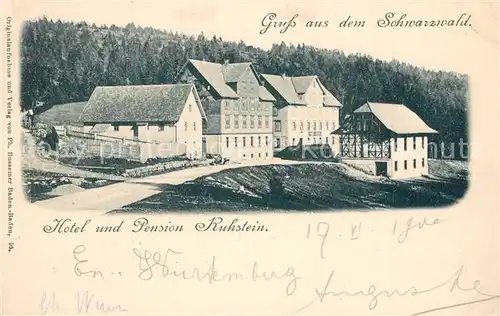 Gruß aus dem Schwarzwald.
Originalaufnahme und Verlag von Ph. Hussener Baden-Baden, 95.
Hotel und Pension Ruhstein.
17. VI. 1900
Wurtemburg
Auguste